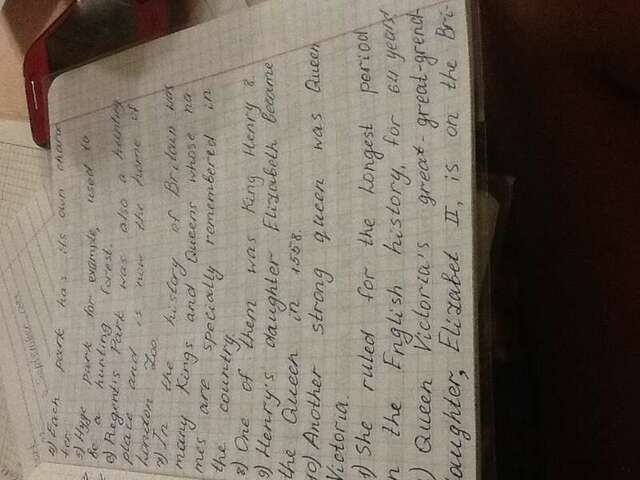 4) Each park has its own charac
ter.
5) Hyge park for example, used to
be a hunting forest.
6) Regent's Park was also a hunting
place and is now the home of
London Zoo.
7) In the history of Britain were
many Kings and Queens whose na
mes are specially remembered in
the country.
8) One of them was King Henry 8.
9) Henry's daughter Elizabeth became
the Queen in 1558.
10) Another strong queen was Queen
Victoria.
1) She ruled for the longest period
n the English history, for 64 years
) Queen Victoria's great-great-grend
daughter, Elizabet II, is on the Bri-